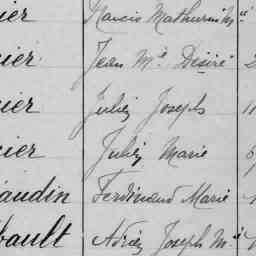 ier Francis Mathurin Mie
ier Jean Mie Désiré 2
ier Julien Joseph 11
ier Julien Marie 6
audin Ferdinand Marie
bault Adrien Joseph Mie